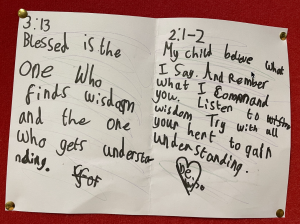 3:13
Blessed is the
one who
finds wisdom
and the one
who gets understa
nding.
2:1-2
My child believe what
I Say. And Rember
what I Command
you. Listen to
wisdom Try with all
your hert to gain
understanding.